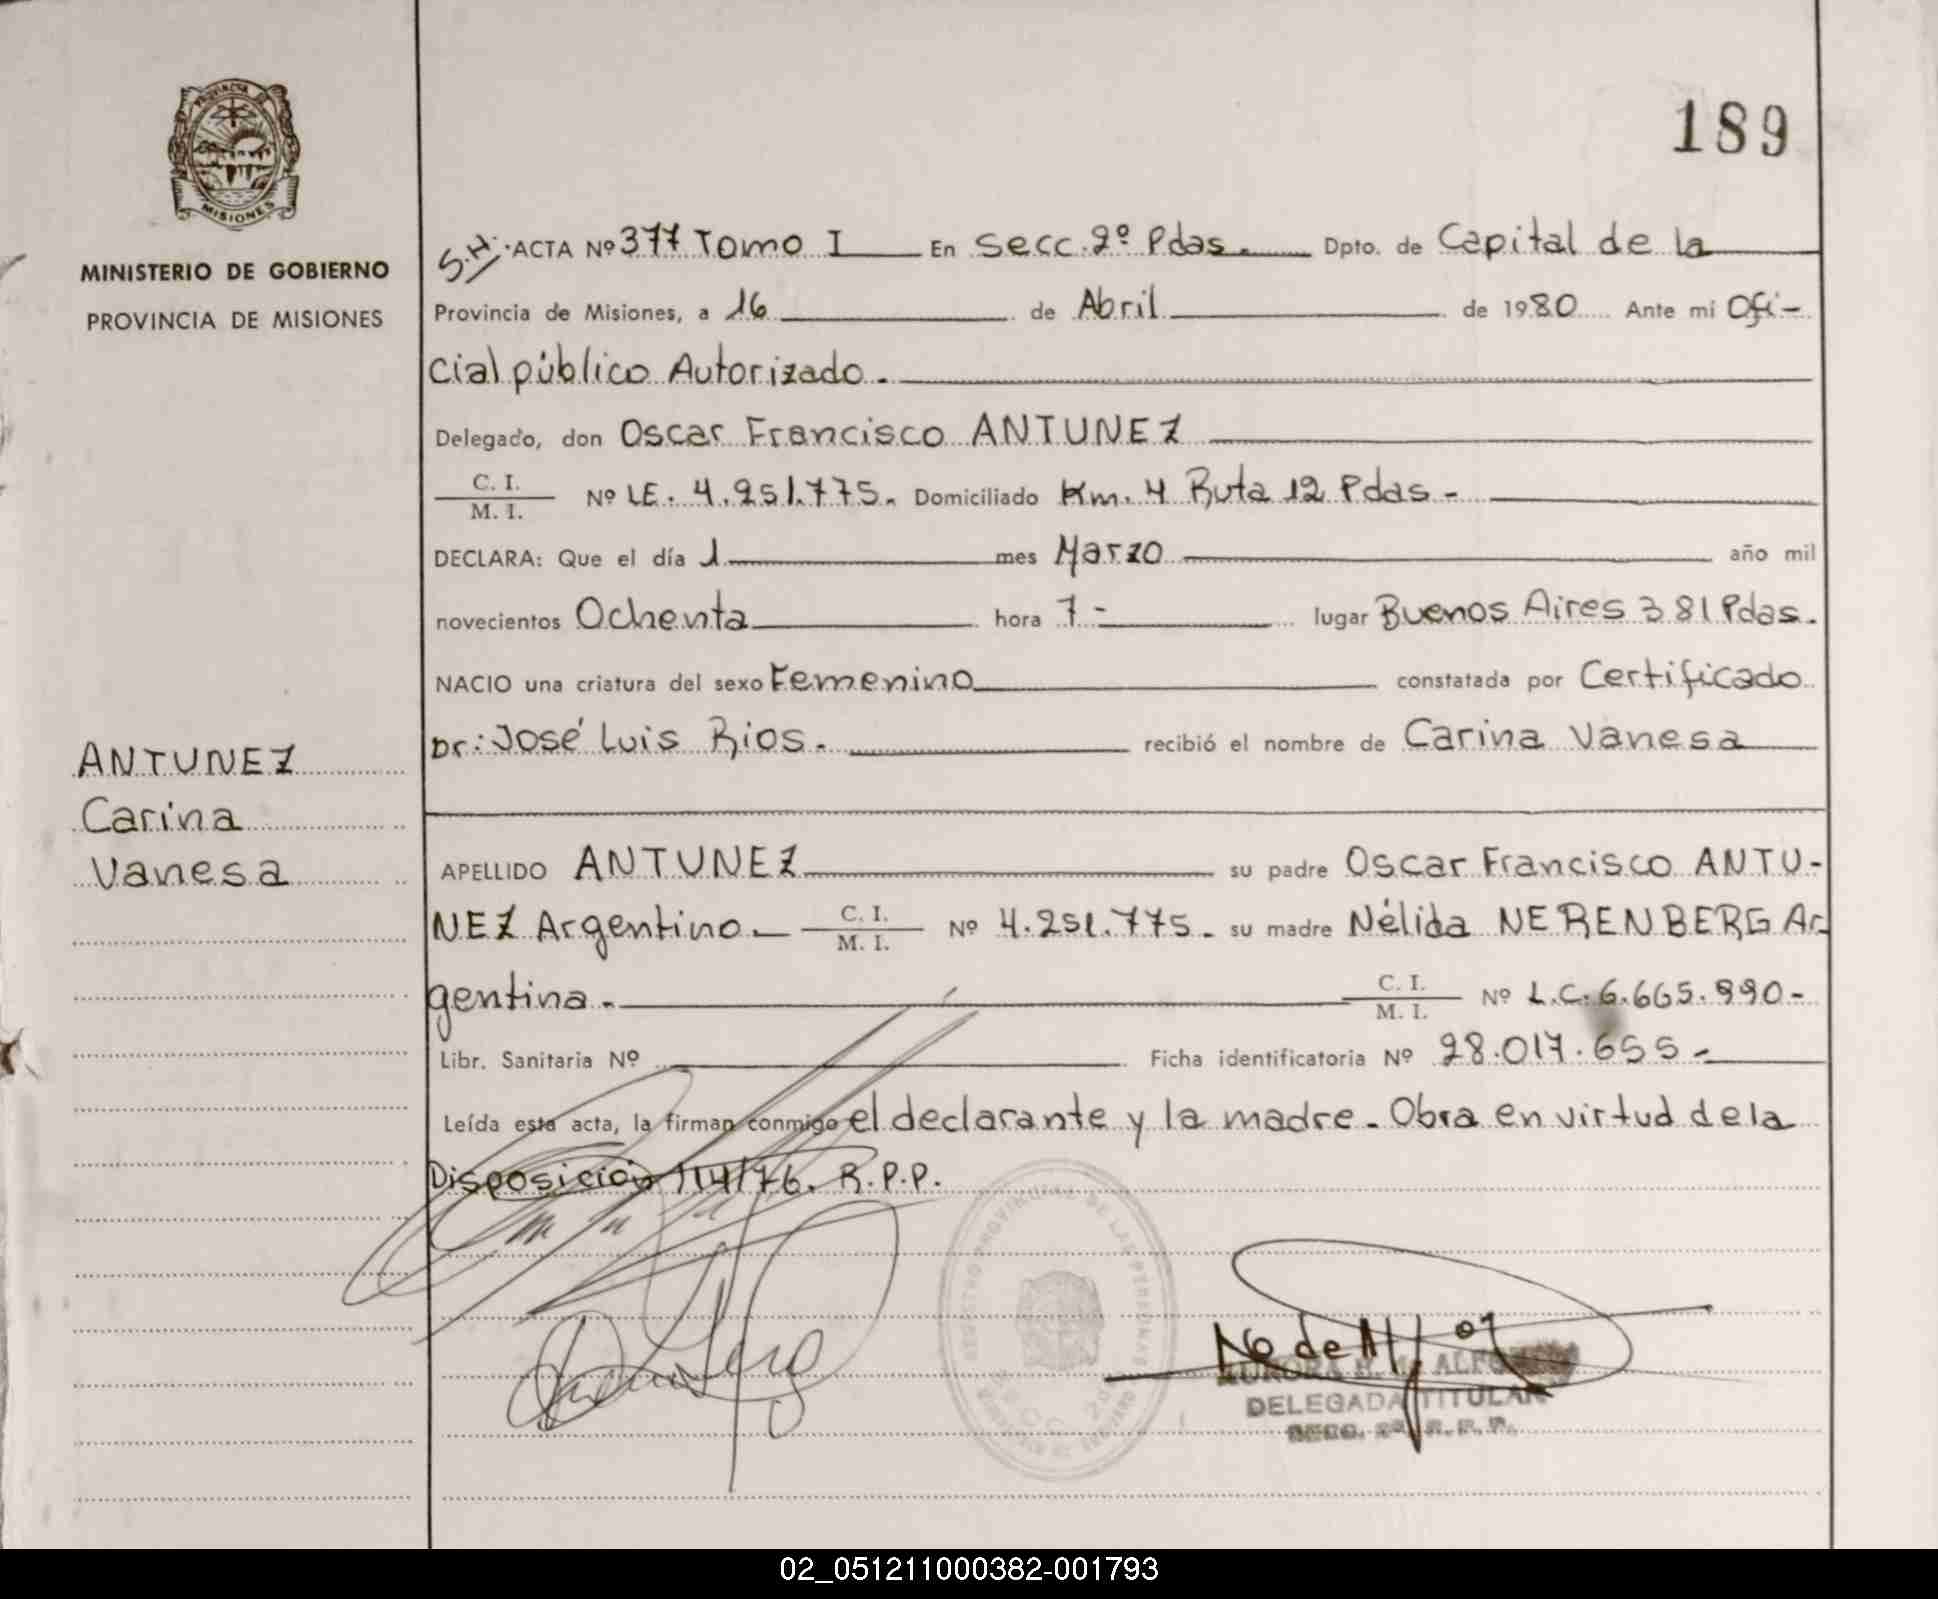 189
PROVINCIA DE
MISIONES
MINISTERIO DE GOBIERNO
PROVINCIA DE MISIONES
S.H. ACTA Nº 377 Tomo I En Secc. 2º Pdas. Dpto. de Capital de la
Provincia de Misiones, a 16 de Abril de 1980 Ante mi Ofi-
cial público Autorizado.
Delegado, don Oscar Francisco ANTUNEZ
C. I.
M. I. Nº LE. 4.251.775. Domiciliado Km. 4 Ruta 12 Pdas -
DECLARA: Que el día 1 mes Marzo año mil
novecientos Ochenta hora 7- lugar Buenos Aires 381 Pdas.
NACIO una criatura del sexo Femenino constatada por Certificado
Dr: José Luis Rios. recibió el nombre de Carina Vanesa
ANTUNEZ
Carina
Vanesa
APELLIDO ANTUNEZ su padre Oscar Francisco ANTU-
NEZ Argentino. C. I.
M. I. Nº 4.251.775. su madre Nélida NERENBERG Ar
gentina. C. I.
M. I. Nº L.C. 6.665.990-
Libr. Sanitaria Nº Ficha identificatoria Nº 28.017.655-
Leída esta acta, la firman conmigo el declarante y la madre. Obra en virtud de la
Disposición 114/76. R.P.P.
REGISTRO PROVINCIAL DE LAS PERSONAS
DELEGADA TITULAR
SECC. 2ª R. P. P.
02_051211000382-001793